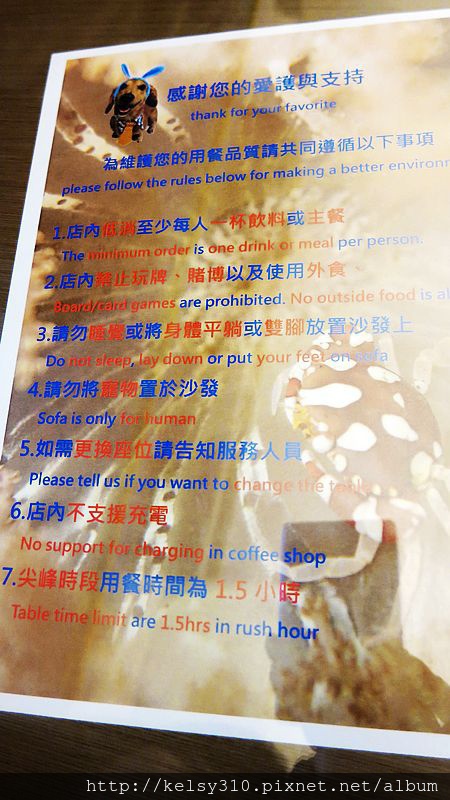 感謝您的愛護與支持
thank for your favorite
為維護您的用餐品質請共同遵循以下事項
please follow the rules below for making a better
1.店內低消至少每人一杯飲料或主餐
The minimum order is one drink or meal per person.
2.店內禁止玩牌、賭博以及使用外食、
Board/card games are prohibited. No outside food is
3.請勿睡覺或將身體平躺或雙腳放置沙發上
Do not sleep, lay down or put your feet on sofa
4.請勿將寵物置於沙發
Sofa is only for human
5.如需更換座位請告知服務人員
Please tell us if you want to change the table
6.店內不支援充電
No support for charging in coffee shop
7.尖峰時段用餐時間為 1.5 小時
Table time limit are 1.5hrs in rush hour
http://kelsy310.pixnet.net/album